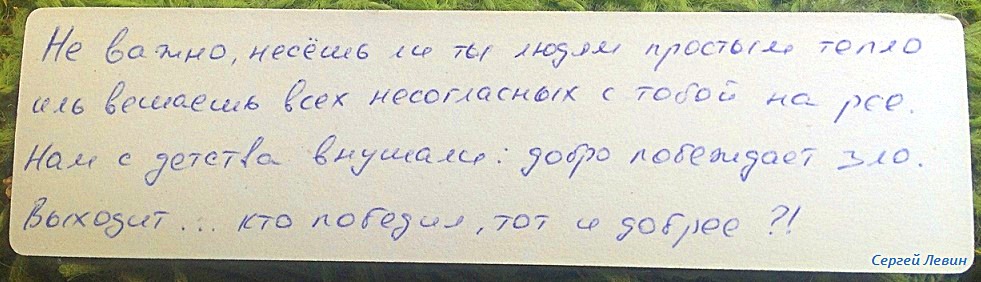 Не важно, несёшь ли ты людям простым тепло
иль вешаешь всех несогласных с тобой на рее.
Нам с детства внушали: добро побеждает зло.
Выходит... кто победил, тот и добрее?!
Сергей Левин